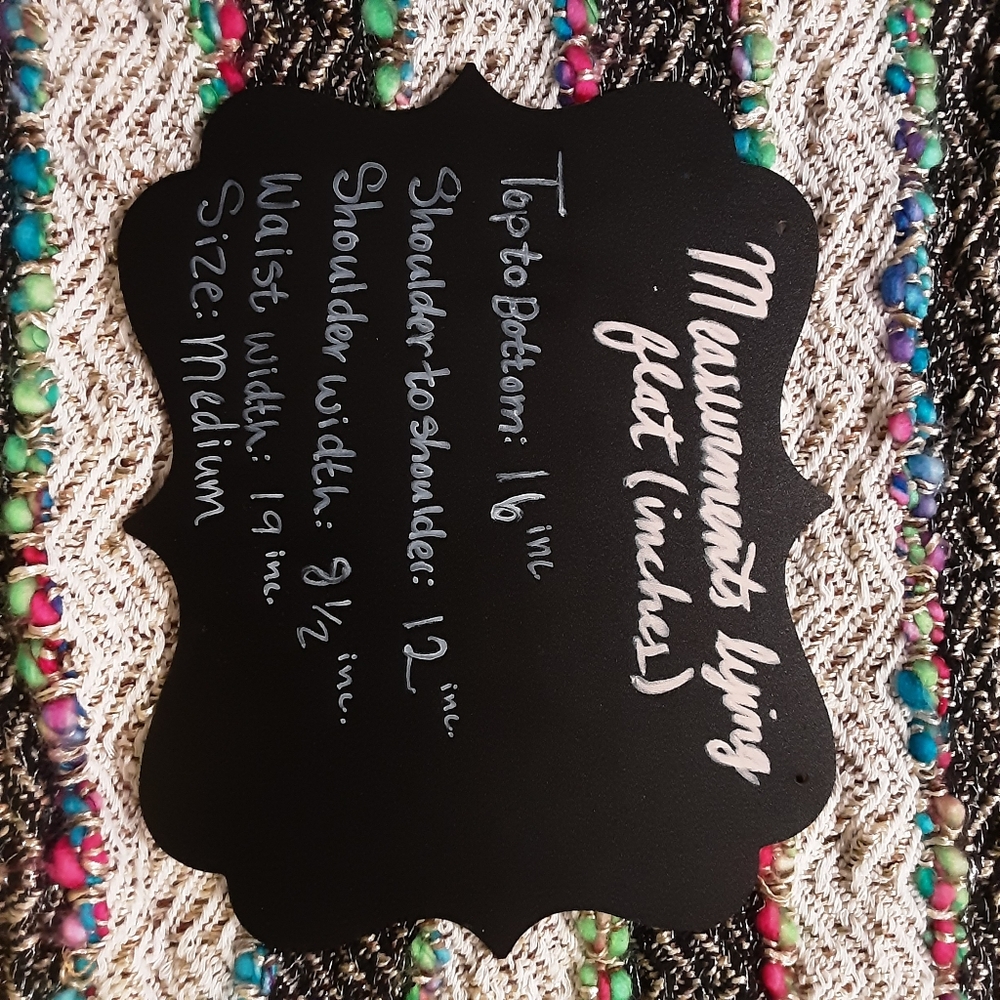 Measurments lying
flat (inches)
Top to Bottom: 16 inc
Shoulder to shoulder: 12 inc.
Shoulder width: 8 1/2 inc.
Waist width: 19 inc.
Size: Medium